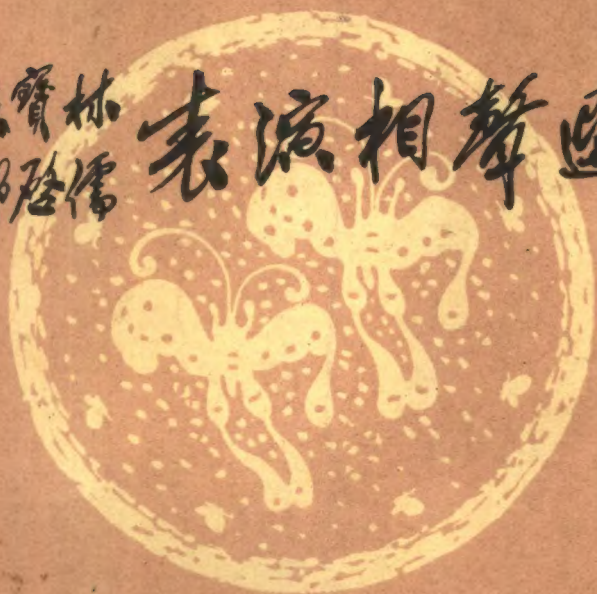 寶林
啓儒
表演相聲